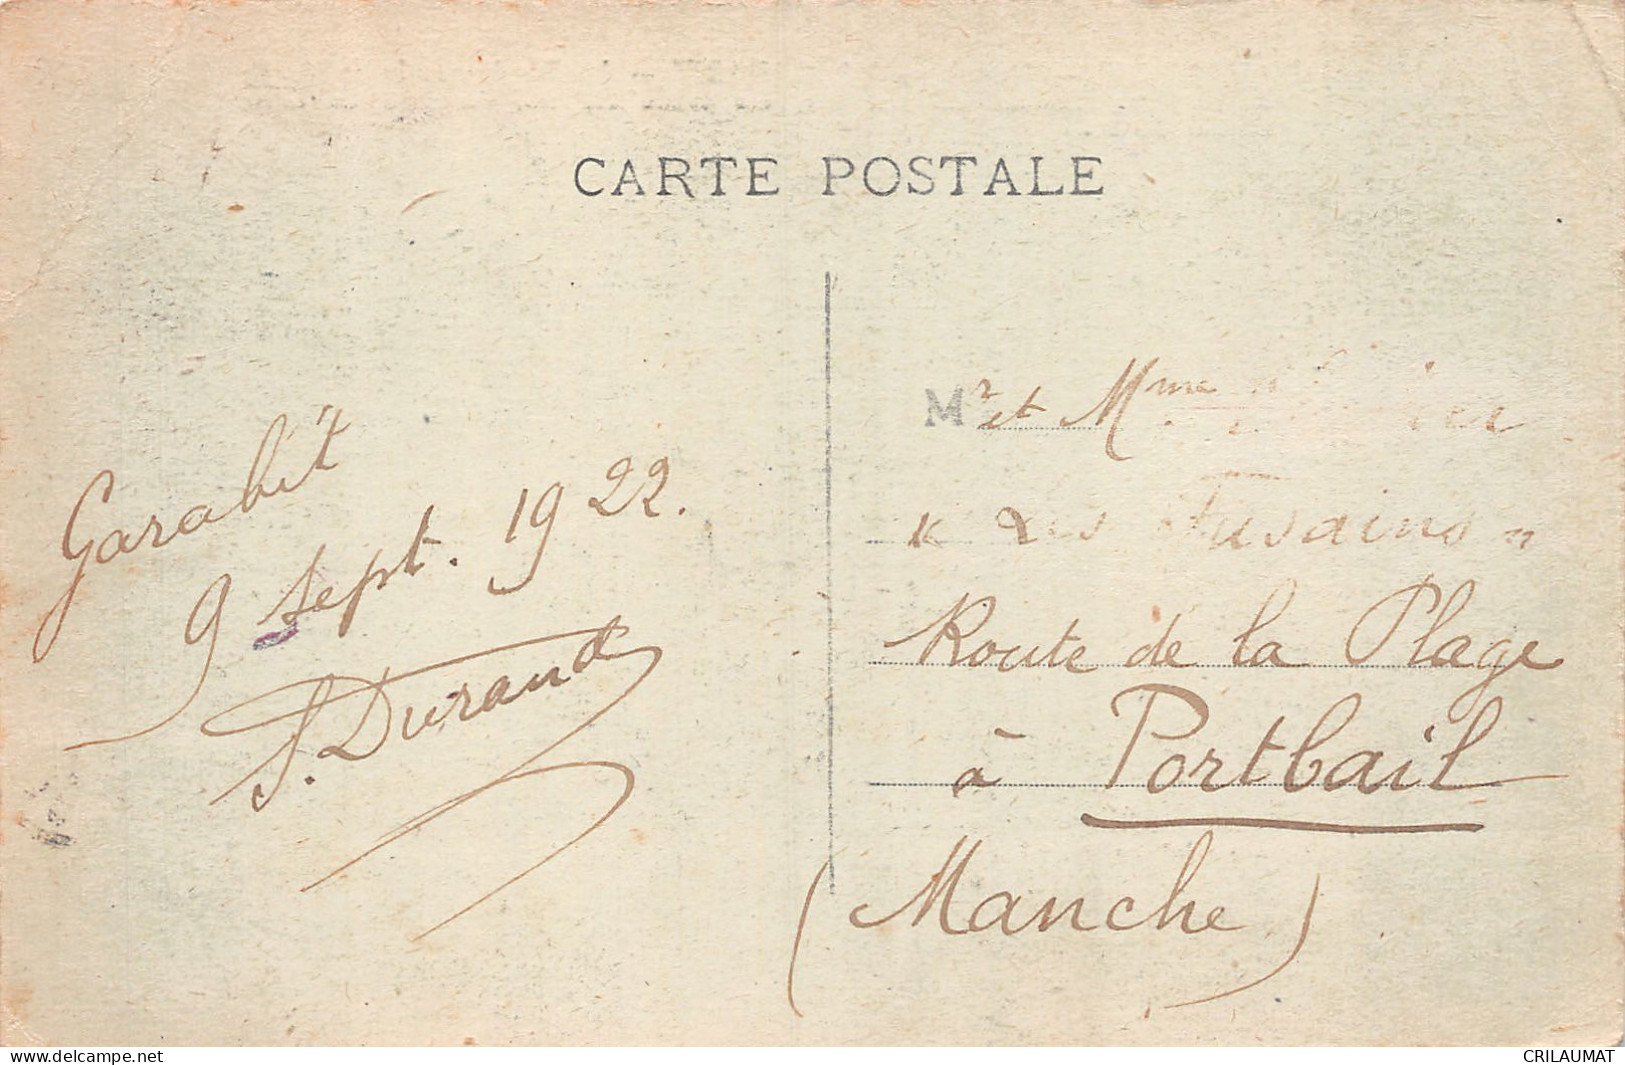 CARTE POSTALE
Garabit
9 Sept. 1922.
S. Durand
Mr et Mme
« Les Fusains »
Route de la Plage
à Portbail
(Manche)
https://www.delcampe.net
CRILAUMAT